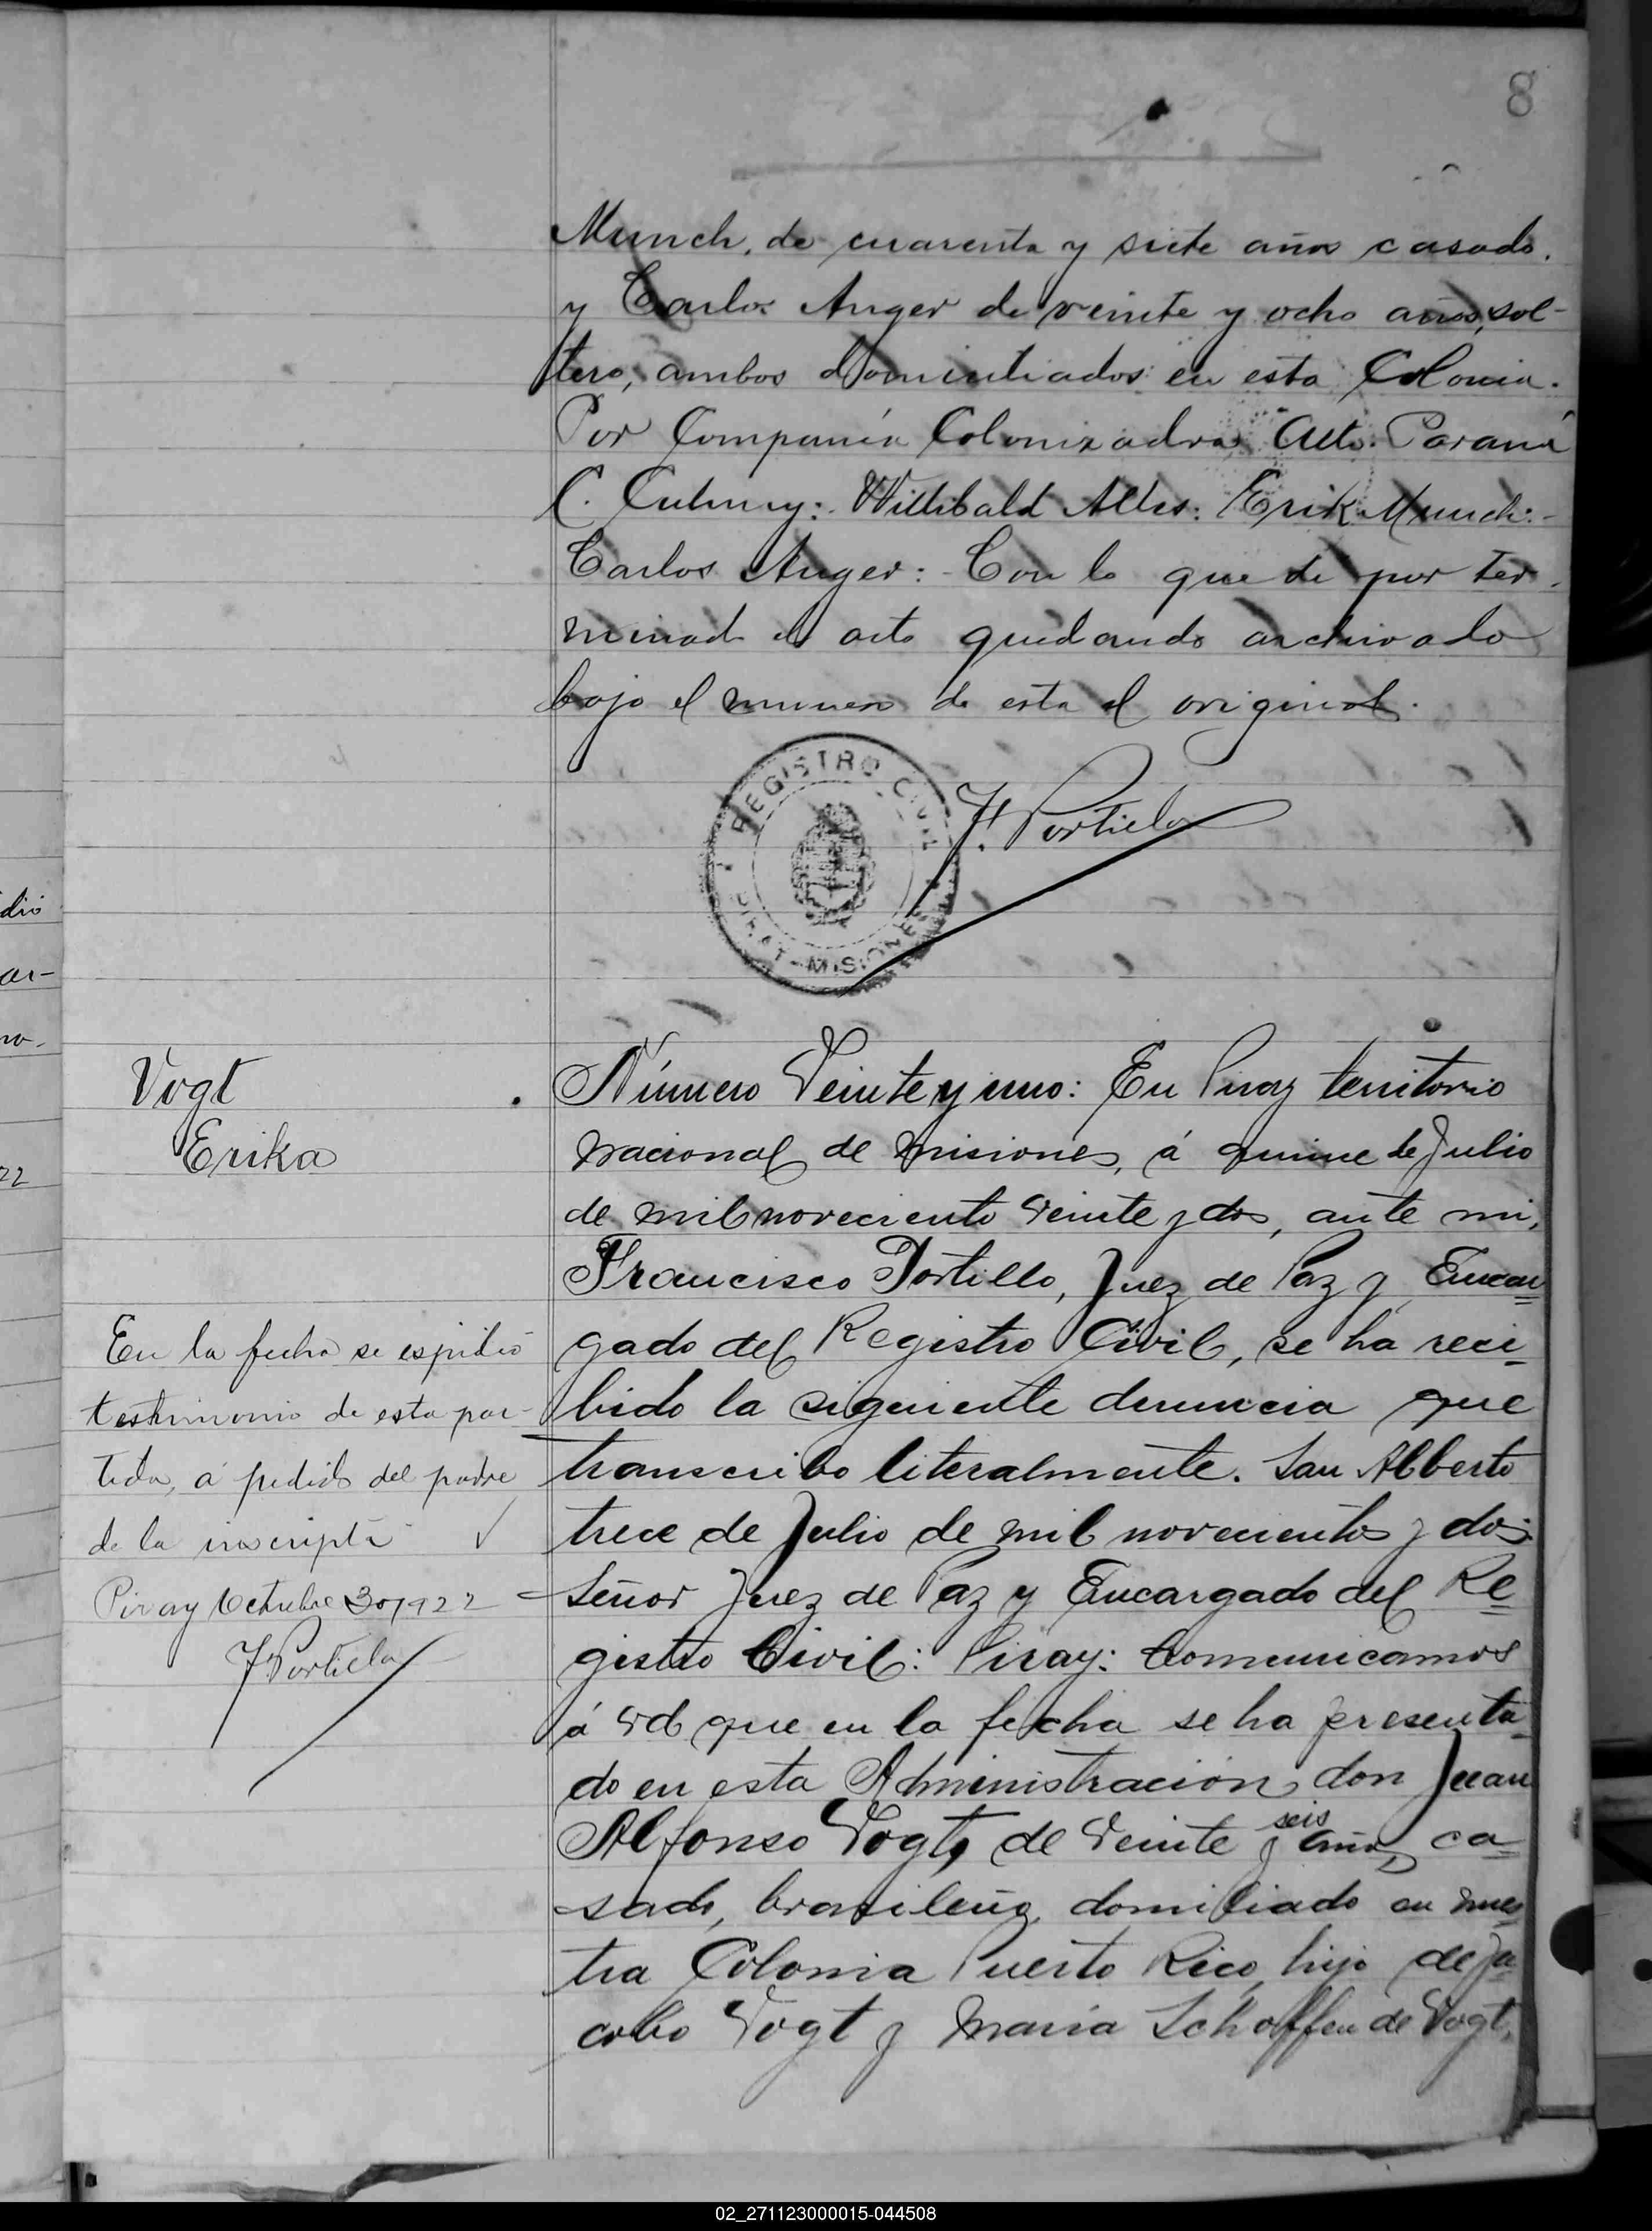 8
Munch, de cuarenta y siete años casado.
y Carlos Anger de veinte y ocho años, sol-
tero, ambos domiciliados en esta Colonia.
Por Compania Colonizadora Alto Paraná
C. Culmey: Willibald Alles: Erik Munch:-
Carlos Anger:- Con lo que di por ter-
minad el acto quedando archivado
bajo el numero de esta el original.
REGISTRO CIVIL
PIRAY-MISIONES
F. Portillo
Vogt
Erika
Número Veinte y uno: En Piray territorio
nacional de misiones, á quince de Julio
de mil noveciento veinte y dos, ante mi,
Francisco Portillo, Juez de Paz y Encar=
gado del Registro Civil, se ha reci=
bido la siguiente denuncia que
transcribo literalmente. San Alberto
trece de Julio de mil novecientos y dos.
Señor Juez de Paz y Encargado del Re=
gistro Civil: Piray: Comunicamos
á Vd que en la fecha se ha presenta=
do en esta Administración don Juan
Alfonso Vogt, de veinte y seis años, ca=
sado, brasileño, domiliado en nues
tra Colonia Puerto Rico, hijo de Ja
cobo Vogt y Maria Schoffen de Vogt,
En la fecha se espidió
testimonio de esta par-
tida, á pedido del padre
de la inscripta
Piray Octubre 30/922
F. Portillo
dió
ar-
no-
22
02_271123000015-044508